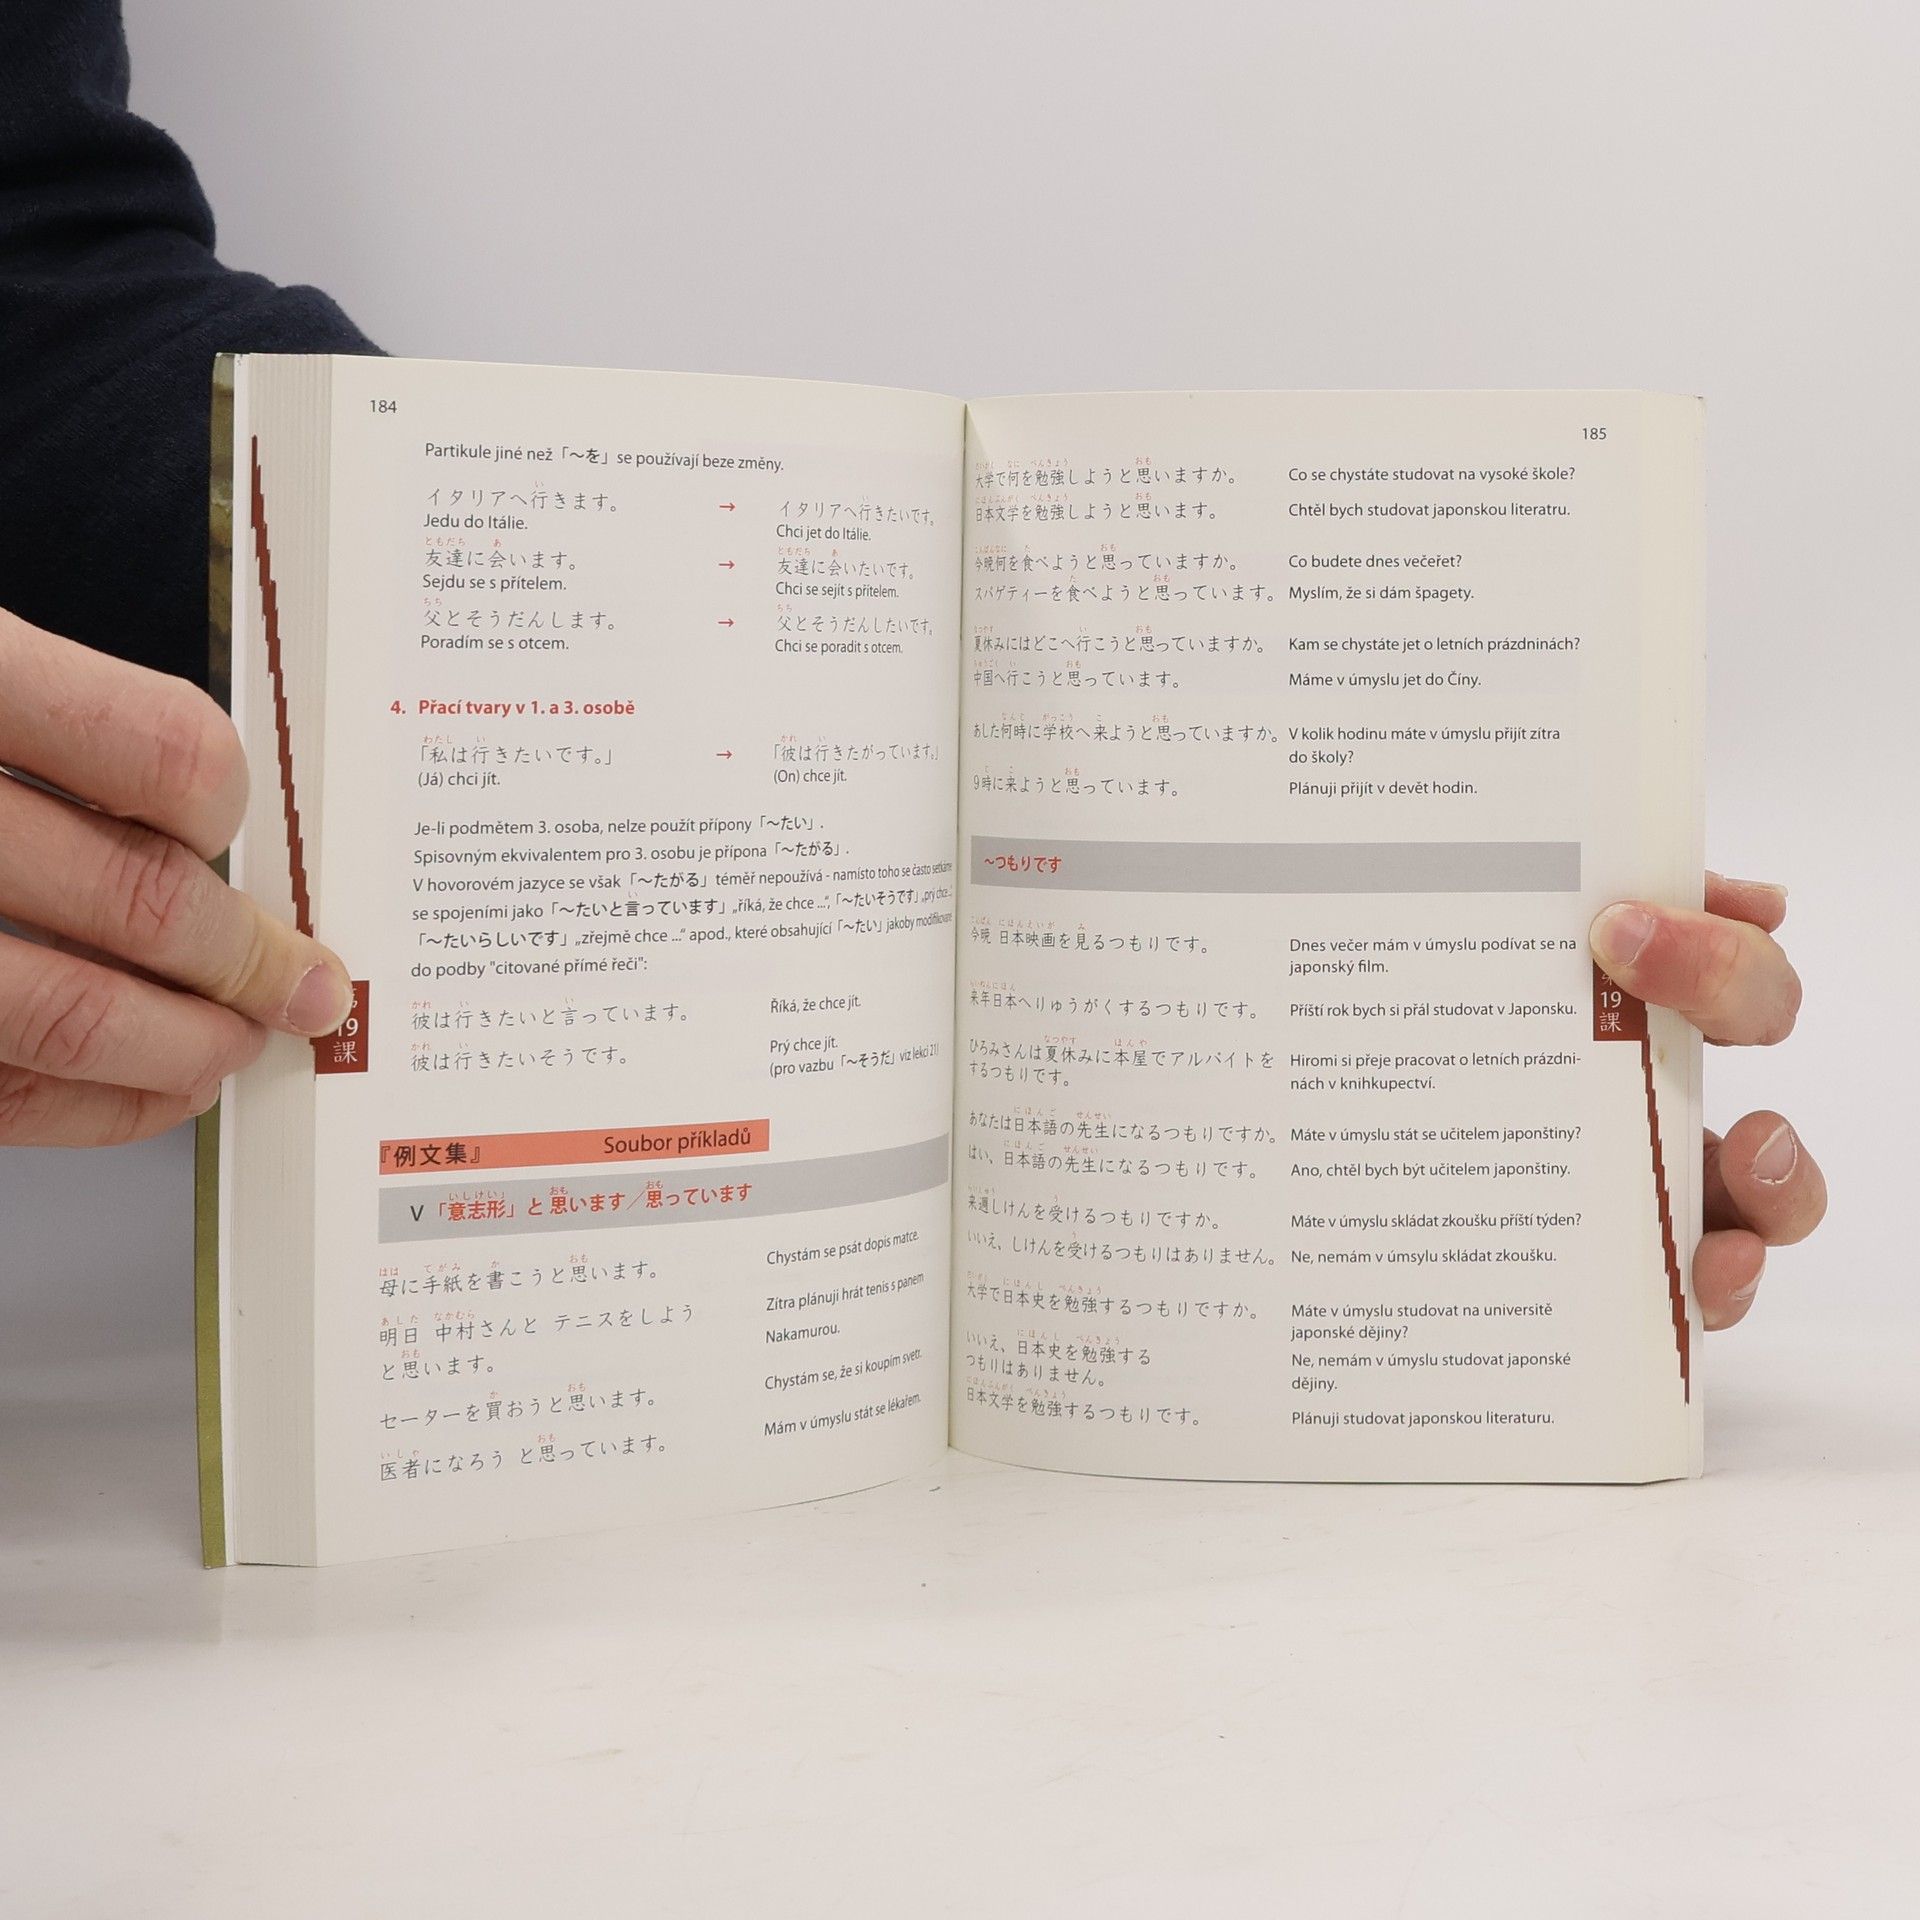 184
Partikule jiné než「～を」se používají beze změny.
い い
イタリアへ行きます。 → イタリアへ行きたいです。
Jedu do Itálie. Chci jet do Itálie.
ともだち あ ともだち あ
友達に会います。 → 友達に会いたいです。
Sejdu se s přítelem. Chci se sejít s přítelem.
ちち ちち
父とそうだんします。 → 父とそうだんしたいです。
Poradím se s otcem. Chci se poradit s otcem.
4. Přací tvary v 1. a 3. osobě
わたし い かれ い
「私は行きたいです。」 → 「彼は行きたがっています。」
(Já) chci jít. (On) chce jít.
Je-li podmětem 3. osoba, nelze použít přípony「～たい」.
Spisovným ekvivalentem pro 3. osobu je přípona「～たがる」.
V hovorovém jazyce se však「～たがる」téměř nepoužívá - namísto toho se často setkáme
い
se spojeními jako「～たいと言っています」„říká, že chce ...“, 「～たいそうです」„prý chce ...“
「～たいらしいです」„zřejmě chce ...“ apod., které obsahující「～たい」jakoby modifikované
do podoby "citované přímé řeči":
かれ い い
彼は行きたいと言っています。 Říká, že chce jít.
かれ い
彼は行きたいそうです。 Prý chce jít.
(pro vazbu「～そうだ」viz lekci 21)
19
課
『例文集』 Soubor příkladů
いしけい おも おも
V「意志形」と思います／思っています
はは てがみ か おも
母に手紙を書こうと思います。 Chystám se psát dopis matce.
あした なかむら
明日 中村さんと テニスをしよう Zítra plánuji hrát tenis s panem
おも
と思います。 Nakamurou.
か おも
セーターを買おうと思います。 Chystám se, že si koupím svetr.
いしゃ おも
医者になろう と思っています。 Mám v úmyslu stát se lékařem.
185
だいがく なに べんきょう おも
大学で何を勉強しようと思いますか。 Co se chystáte studovat na vysoké škole?
にほんぶんがく べんきょう おも
日本文学を勉強しようと思います。 Chtěl bych studovat japonskou literatru.
こんばんなに た おも
今晩何を食べようと思っていますか。 Co budete dnes večeřet?
た おも
スパゲティーを食べようと思っています。 Myslím, že si dám špagety.
なつやす い おも
夏休みにはどこへ行こうと思っていますか。 Kam se chystáte jet o letních prázdninách?
ちゅうごく い おも
中国へ行こうと思っています。 Máme v úmyslu jet do Číny.
なんじ がっこう こ おも
あした何時に学校へ来ようと思っていますか。 V kolik hodinu máte v úmyslu přijít zítra
do školy?
じ こ おも
9時に来ようと思っています。 Plánuji přijít v devět hodin.
～つもりです
こんばん にほんえいが み
今晩 日本映画を見るつもりです。 Dnes večer mám v úmyslu podívat se na
japonský film.
らいねんにほん
来年日本へりゅうがくするつもりです。 Příští rok bych si přál studovat v Japonsku.
なつやす ほんや
ひろみさんは夏休みに本屋でアルバイトを Hiromi si přeje pracovat o letních prázdni-
するつもりです。 nách v knihkupectví.
にほんご せんせい
あなたは日本語の先生になるつもりですか。 Máte v úmyslu stát se učitelem japonštiny?
にほんご せんせい
はい、日本語の先生になるつもりです。 Ano, chtěl bych být učitelem japonštiny.
らいしゅう う
来週しけんを受けるつもりですか。 Máte v úmyslu skládat zkoušku příští týden?
う
いいえ、しけんを受けるつもりはありません。 Ne, nemám v úmsylu skládat zkoušku.
だいがく にほんし べんきょう
大学で日本史を勉強するつもりですか。 Máte v úmyslu studovat na universitě
japonské dějiny?
にほんし べんきょう
いいえ、日本史を勉強する Ne, nemám v úmyslu studovat japonské
つもりはありません。 dějiny.
にほんぶんがく べんきょう
日本文学を勉強するつもりです。 Plánuji studovat japonskou literaturu.
19
課